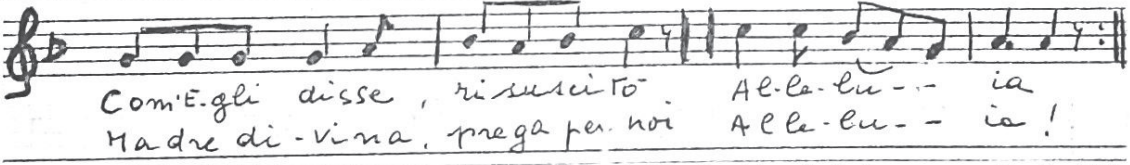 Com'E-gli disse, risuscitò Al-le-lu--- ia
Madre di-vina, prega per noi Alle-lu-- ia!